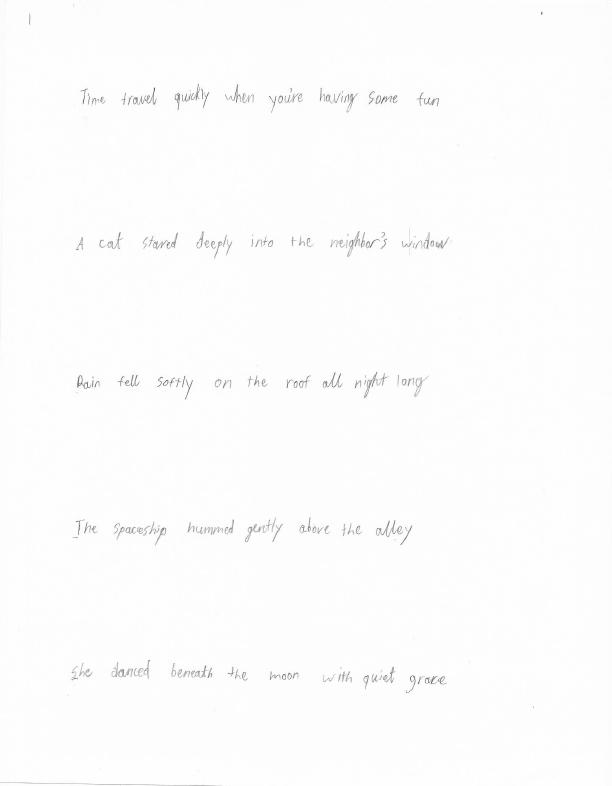 Time travel quickly when you're having some fun
A cat stared deeply into the neighbor's window
Rain fell softly on the roof all night long
The spaceship hummed gently above the alley
She danced beneath the moon with quiet grace